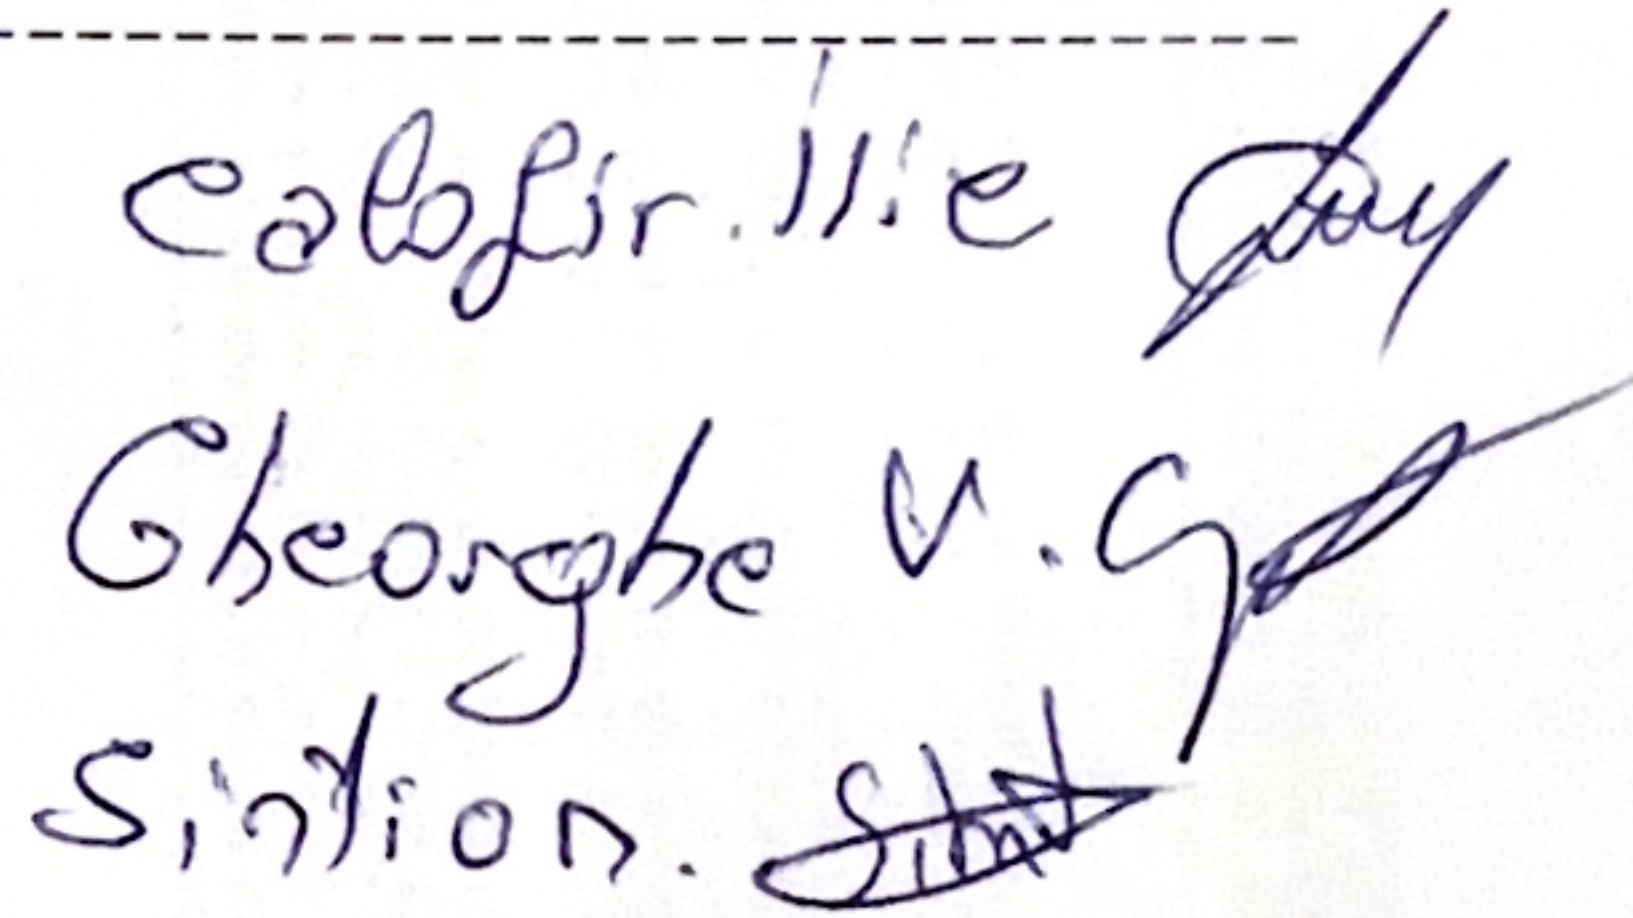 Calofir. Ilie
Gheorghe V.
Sintion.